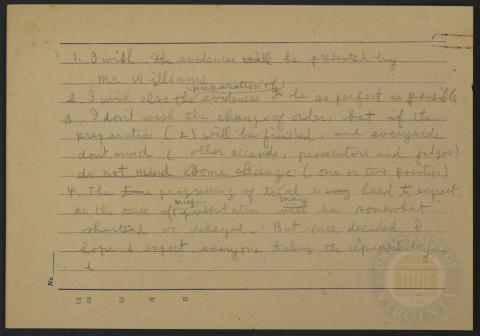 1. I wish the evidences will be presented by
Mr. Williams
preparation of
2. I wish also the evidences to be as perfect as possible
3. I don't wish the change of order, but if the
preparation (2) will be finished, and everyside
dont mind ( other accuseds, prosecutors and judges)
do not mind some change ( one or two position)
4. The time progressing of trial is very hard to expect,
my may
so the time of presentation will be somewhat
shortend or delayed. But once decided, I
hope & expect everyone taking the responsibility
&
No.
UNIVERSITY OF
VIRGINIA